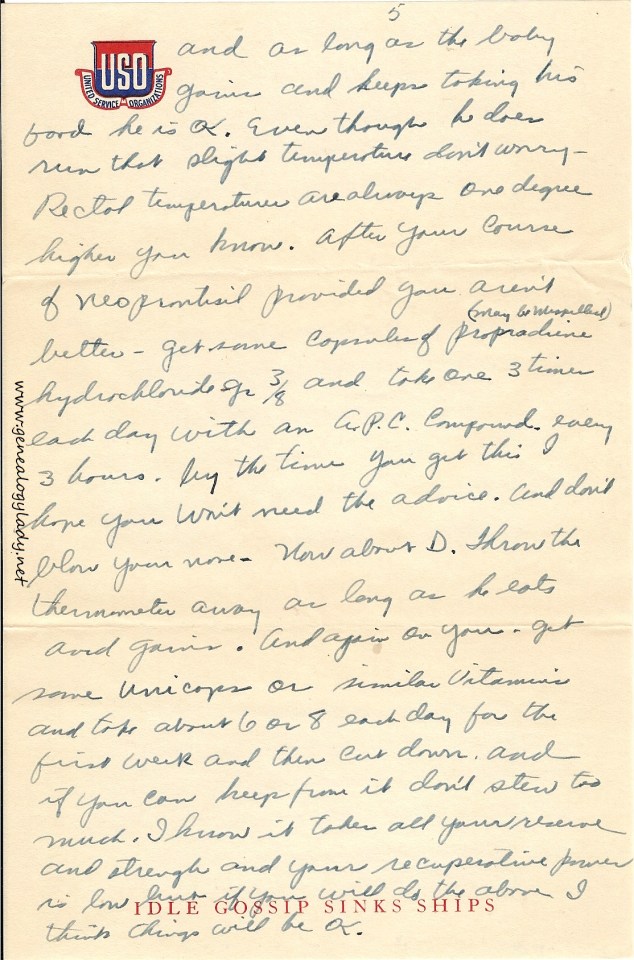 5
USO
UNITED SERVICE ORGANIZATIONS
and as long as the baby
gains and keeps taking his
food he is OK. Even though he does
run that slight temperature don't worry –
Rectal temperatures are always one degree
higher you know. After your course
of neoprontisil provided you aren't
(may be misspelled)
better – get some capsules of propradrine
hydrochloride gr 3/8 and take one 3 times
each day with an A.P.C. Compound every
3 hours. By the time you get this I
hope you won't need the advice. And don't
blow your nose – Now about D. Throw the
thermometer away as long as he eats
and gains. And again on you – get
some Unicaps or similar Vitamins
and take about 6 or 8 each day for the
first week and then cut down. And
if you can keep from it don't stew too
much. I know it takes all your reserve
and strength and your recuperative power
is low but if you will do the above I
think things will be OK.
IDLE GOSSIP SINKS SHIPS
www.genealogylady.net